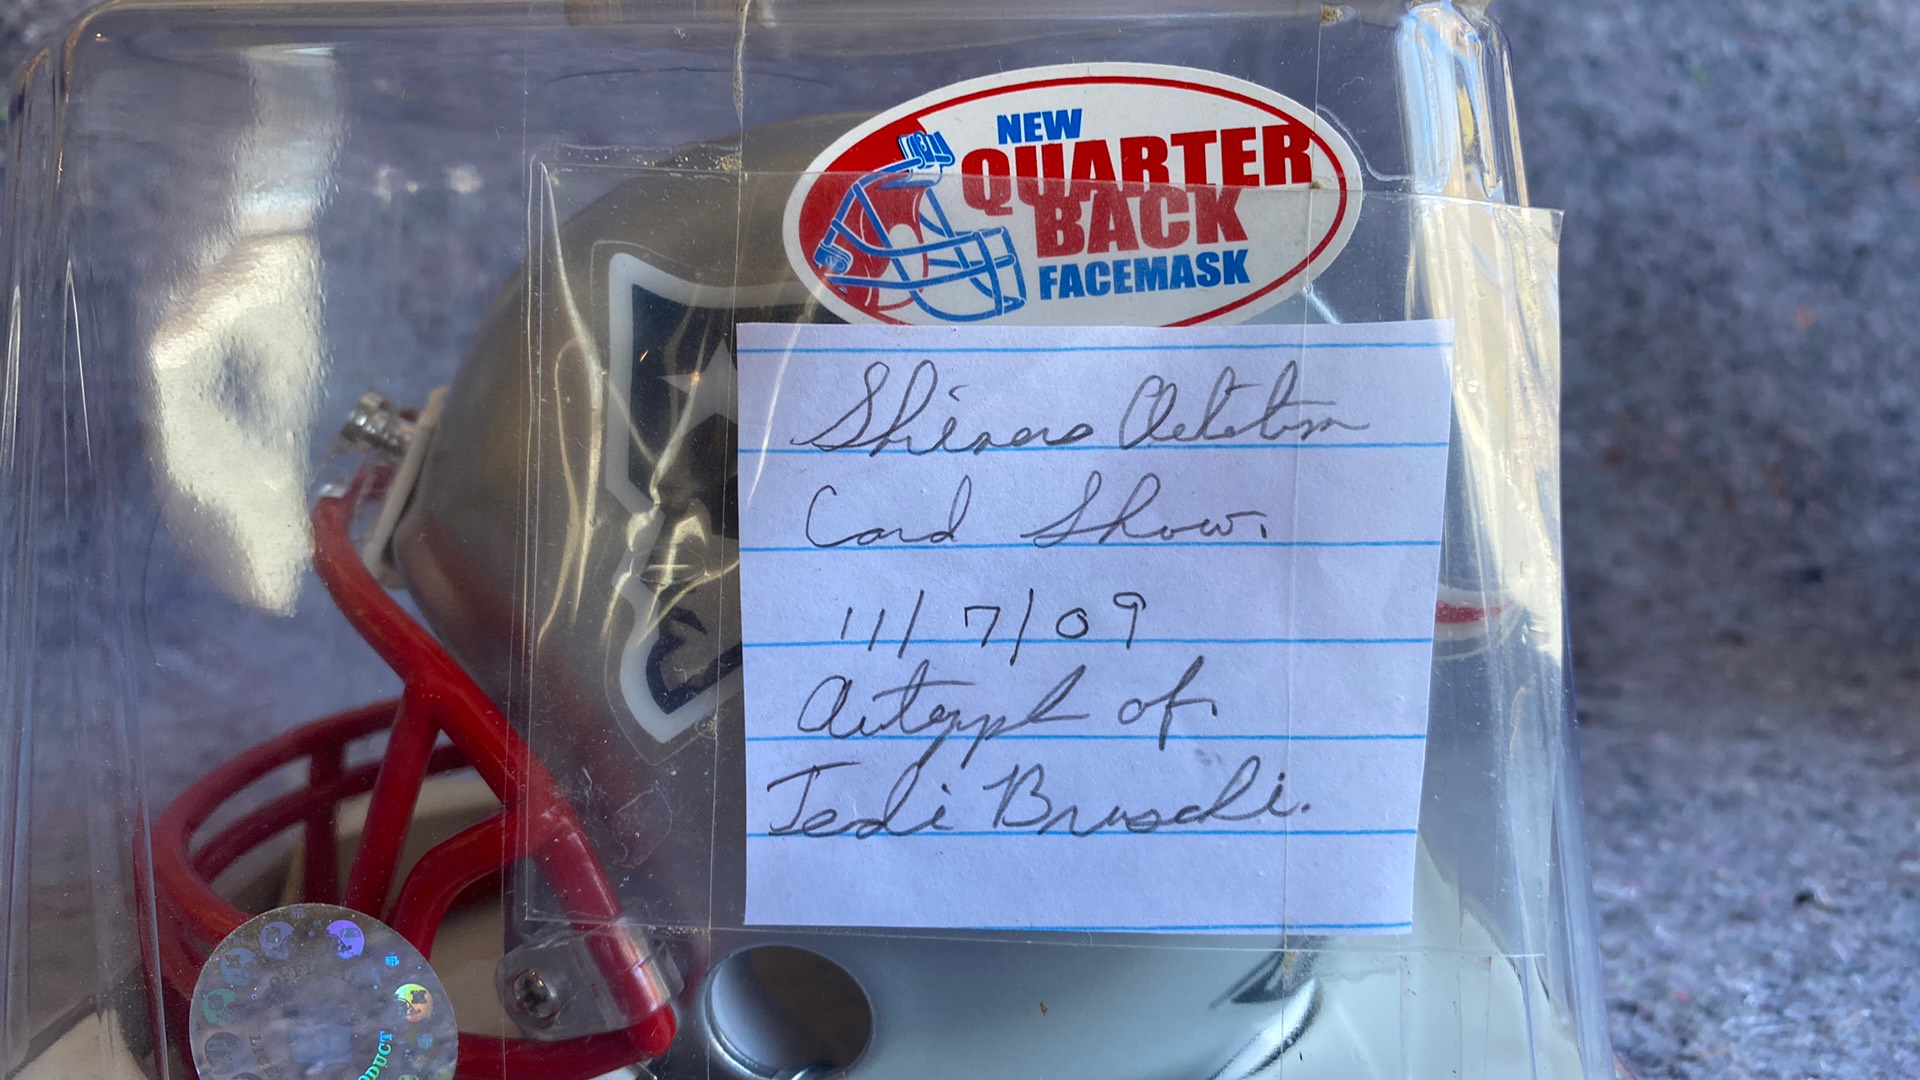 NEW
QUARTER
BACK
FACEMASK
Shiners
Card Show.
11/7/09
Autograph of
Tedi Bruschi.
PRODUCT